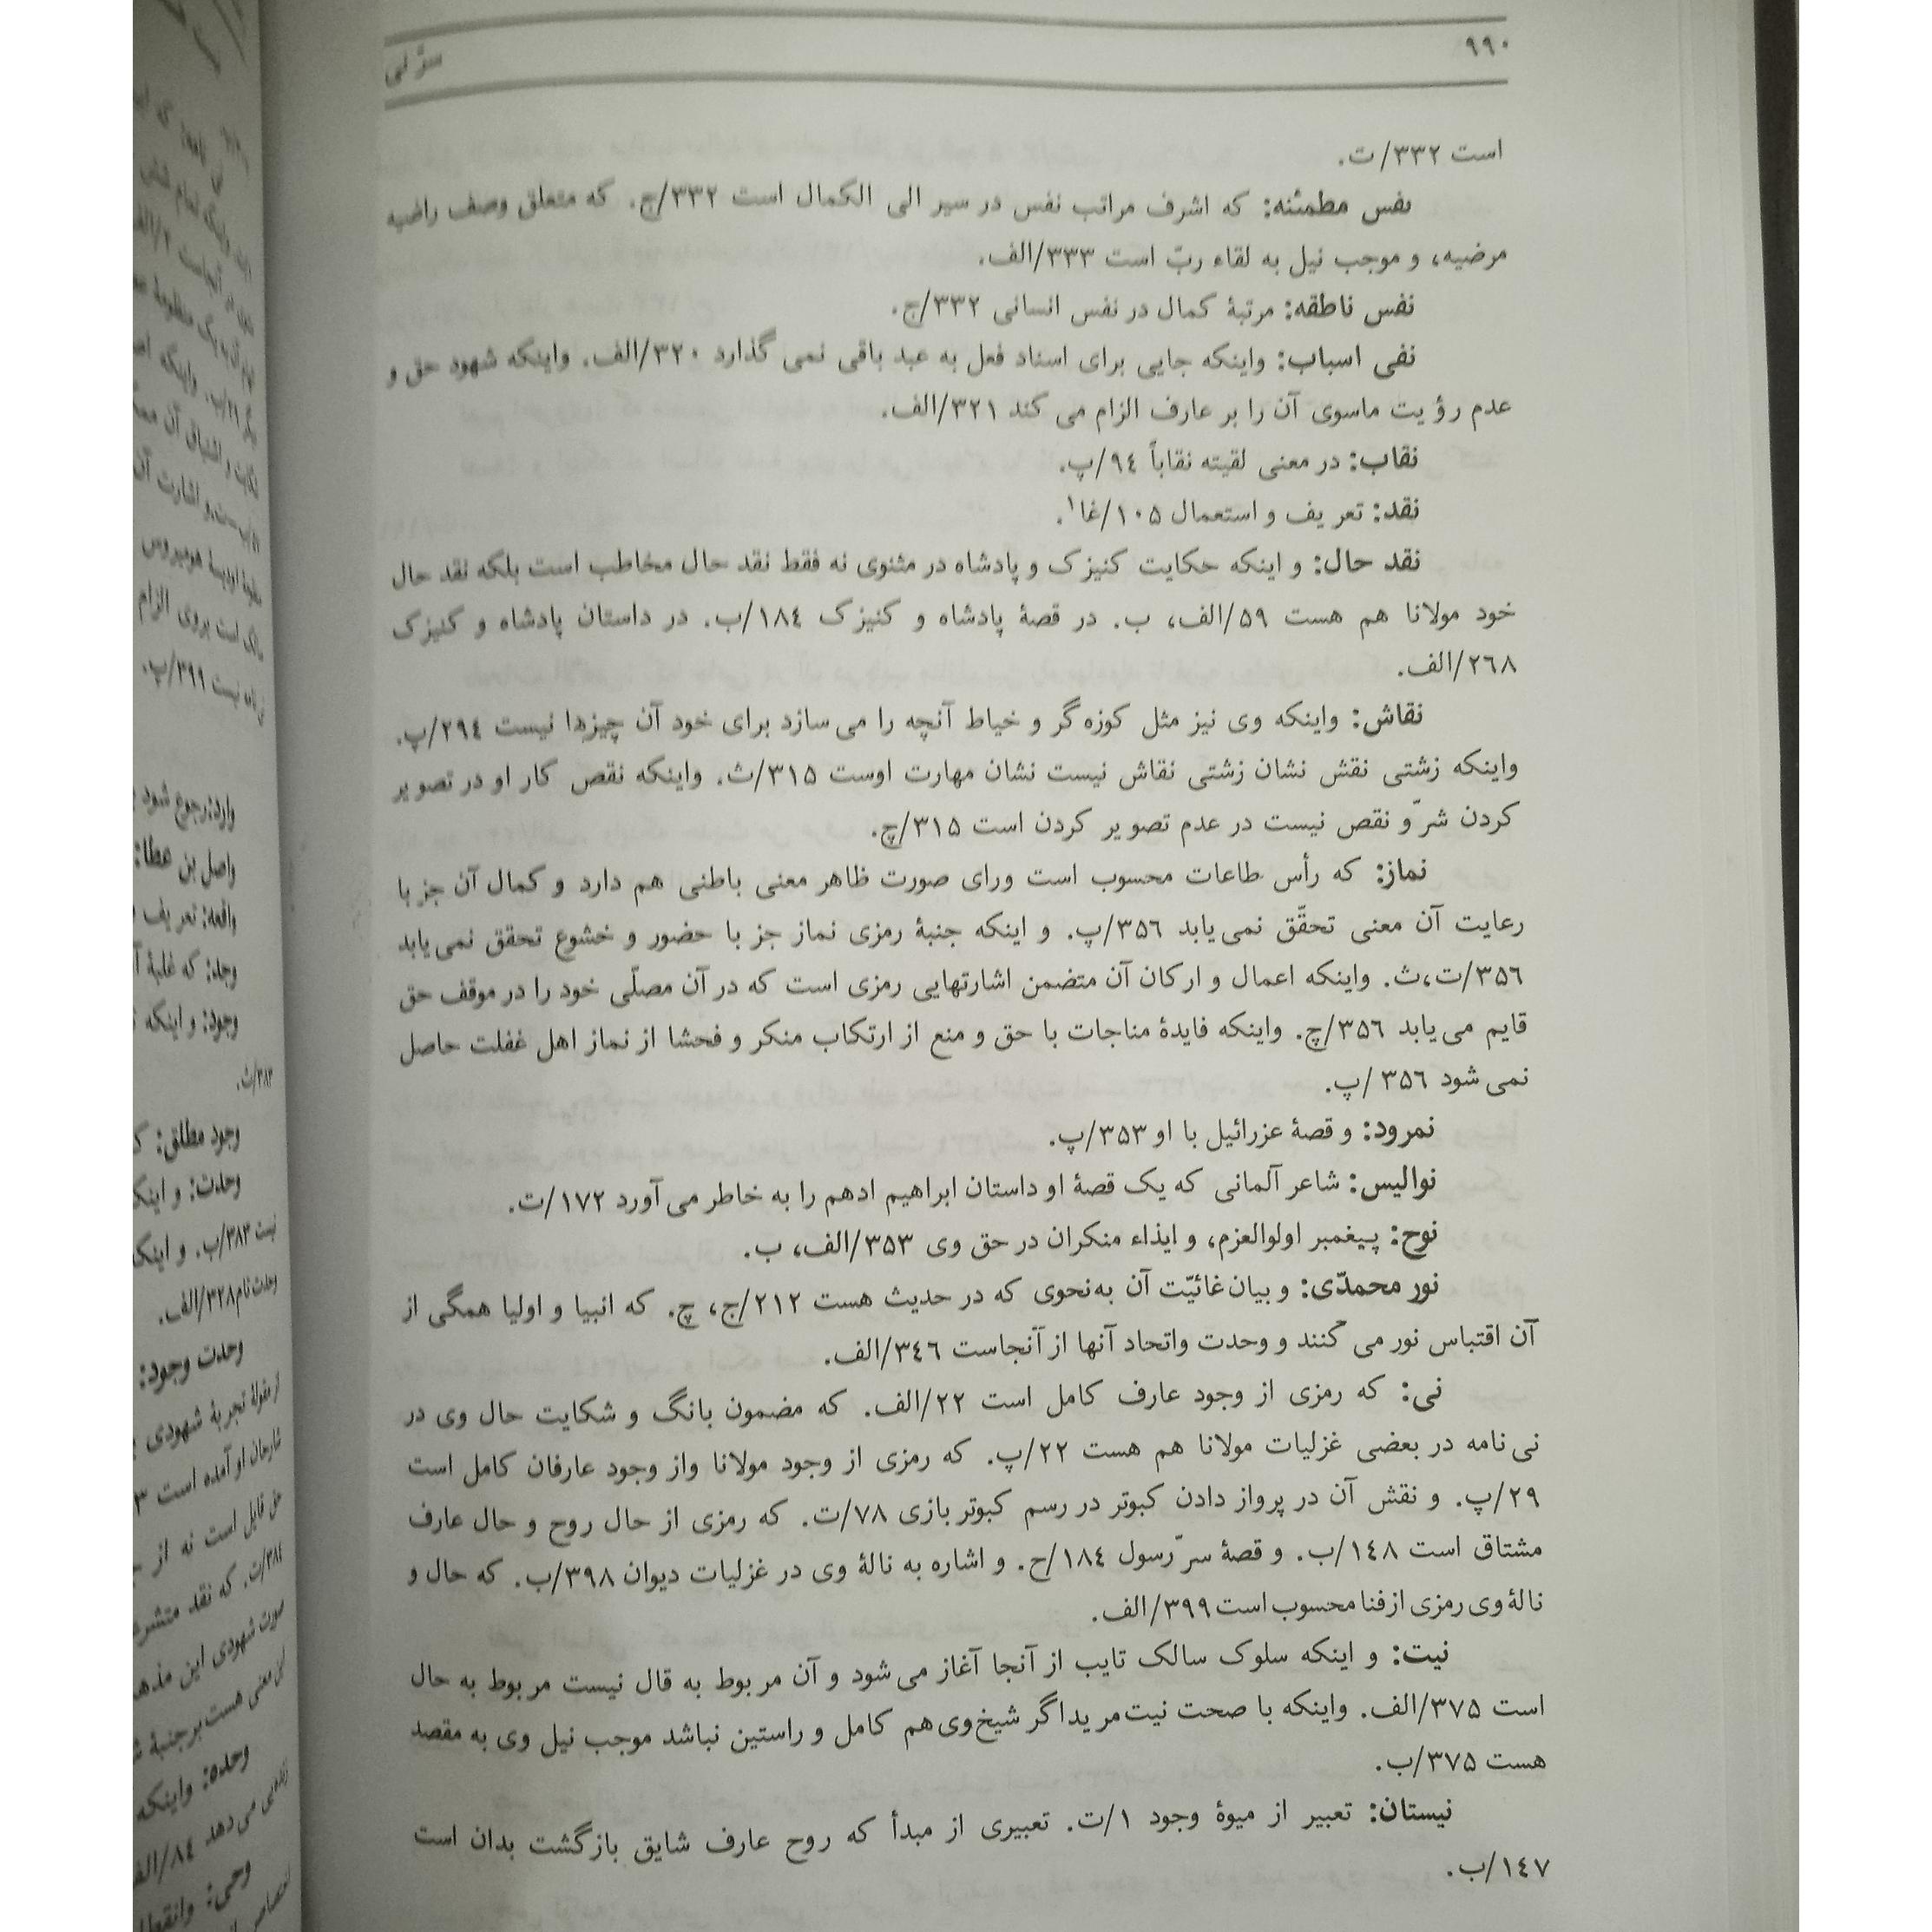 ۹۹۰
سرّ نی
است ۳۳۲/ت.
نفس مطمئنه: که اشرف مراتب نفس در سیر الی الکمال است ۳۳۲/ج. که متعلق وصف راضیه
مرضیه، و موجب نیل به لقاء ربّ است ۳۳۳/الف.
نفس ناطقه: مرتبهٔ کمال در نفس انسانی ۳۳۲/ج.
نفی اسباب: واینکه جایی برای اسناد فعل به عبد باقی نمی گذارد ۳۲۰/الف. واینکه شهود حق و
عدم رؤیت ماسوی آن را بر عارف الزام می کند ۳۲۱/الف.
نقاب: در معنی لقیته نقاباً ۹٤/پ.
نقد: تعریف و استعمال ۱۰۵/غا۱.
نقد حال: و اینکه حکایت کنیزک و پادشاه در مثنوی نه فقط نقد حال مخاطب است بلکه نقد حال
خود مولانا هم هست ۵۹/الف، ب. در قصهٔ پادشاه و کنیزک ۱۸٤/ب. در داستان پادشاه و کنیزک
۲٦۸/الف.
نقاش: واینکه وی نیز مثل کوزه گر و خیاط آنچه را می سازد برای خود آن چیزها نیست ۲۹٤/پ.
واینکه زشتی نقش نشان زشتی نقاش نیست نشان مهارت اوست ۳۱۵/ث. واینکه نقص کار او در تصویر
کردن شرّ و نقص نیست در عدم تصویر کردن است ۳۱۵/چ.
نماز: که رأس طاعات محسوب است ورای صورت ظاهر معنی باطنی هم دارد و کمال آن جز با
رعایت آن معنی تحقّق نمی یابد ۳۵٦/پ. و اینکه جنبهٔ رمزی نماز جز با حضور و خشوع تحقق نمی یابد
۳۵٦/ت،ث. واینکه اعمال و ارکان آن متضمن اشارتهایی رمزی است که در آن مصلّی خود را در موقف حق
قایم می یابد ۳۵٦/چ. واینکه فایدهٔ مناجات با حق و منع از ارتکاب منکر و فحشا از نماز اهل غفلت حاصل
نمی شود ۳۵٦ /پ.
نمرود: و قصهٔ عزرائیل با او ۳۵۳/پ.
نوالیس: شاعر آلمانی که یک قصهٔ او داستان ابراهیم ادهم را به خاطر می آورد ۱۷۲/ت.
نوح: پیغمبر اولوالعزم، و ایذاء منکران در حق وی ۳۵۳/الف، ب.
نور محمدّی: و بیان غائیّت آن به نحوی که در حدیث هست ۲۱۲/ج، چ. که انبیا و اولیا همگی از
آن اقتباس نور می کنند و وحدت واتحاد آنها از آنجاست ۳٤٦/الف.
نی: که رمزی از وجود عارف کامل است ۲۲/الف. که مضمون بانگ و شکایت حال وی در
نی نامه در بعضی غزلیات مولانا هم هست ۲۲/پ. که رمزی از وجود مولانا واز وجود عارفان کامل است
۲۹/پ. و نقش آن در پرواز دادن کبوتر در رسم کبوتر بازی ۷۸/ت. که رمزی از حال روح و حال عارف
مشتاق است ۱٤۸/ب. و قصهٔ سرّ رسول ۱۸٤/ح. و اشاره به نالهٔ وی در غزلیات دیوان ۳۹۸/ب. که حال و
نالهٔ وی رمزی از فنا محسوب است ۳۹۹/الف.
نیت: و اینکه سلوک سالک تایب از آنجا آغاز می شود و آن مربوط به قال نیست مربوط به حال
است ۳۷۵/الف. واینکه با صحت نیت مرید اگر شیخ وی هم کامل و راستین نباشد موجب نیل وی به مقصد
هست ۳۷۵/ب.
نیستان: تعبیر از میوهٔ وجود ۱/ت. تعبیری از مبدأ که روح عارف شایق بازگشت بدان است
۱٤۷/ب.
وارد: رجوع شود
واصل بن عطا:
واقعه: تعریف
وجد: که غلبهٔ
وجود: و اینکه
۳۸۳/ث.
وجود مطلق:
وحدت: و اینکه
نیست ۳۸۳/ب. و اینکه
وحدت تام ۳۲۸/الف.
وحدت وجود:
از مقولهٔ تجربهٔ شهودی
شارحان او آمده است
حق قایل است نه از
۲۸٤/ت. که نقد
صورت شهودی این
وحده: واینکه
وحی: